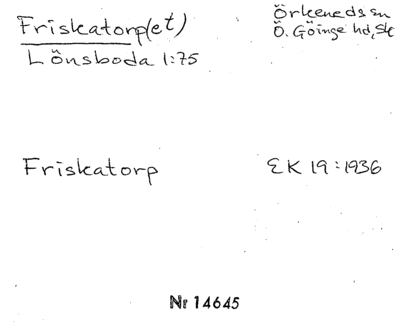 Friskatorp(et)
Örkeneds sn
Ö. Göinge hd, Sk
Lönsboda 1:75
Friskatorp
EK 19:1936
Nr 14645